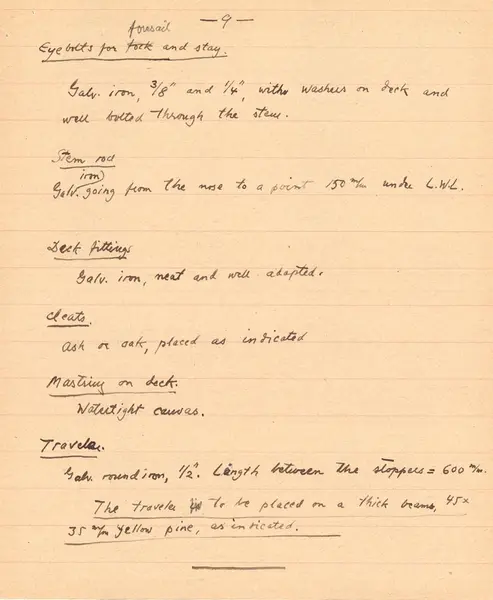 — 9 —
foresail
Eyebolts for fock and stay.
Galv. iron, 3/8" and 1/4", with washers on deck and
well bolted through the stem.
Stem rod
iron
Galv. going from the nose to a point 150 m/m under L.W.L.
Deck fittings
Galv. iron, neat and well adapted.
Cleats.
Ash or oak, placed as indicated
Mastring on deck.
Watertight canvas.
Traveler.
Galv. round iron, 1/2". Length between the stoppers = 600 m/m.
The traveler to be placed on a thick beams, 45x
35 m/m yellow pine, as indicated.